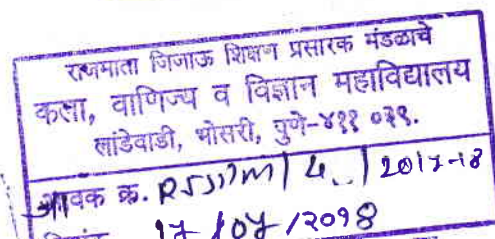 राजमाता जिजाऊ शिक्षण प्रसारक मंडळाचे
कला, वाणिज्य व विज्ञान महाविद्यालय
लांडेवाडी, भोसरी, पुणे-४११ ०३९.
आवक क्र. | 2017-18
17/07/2018